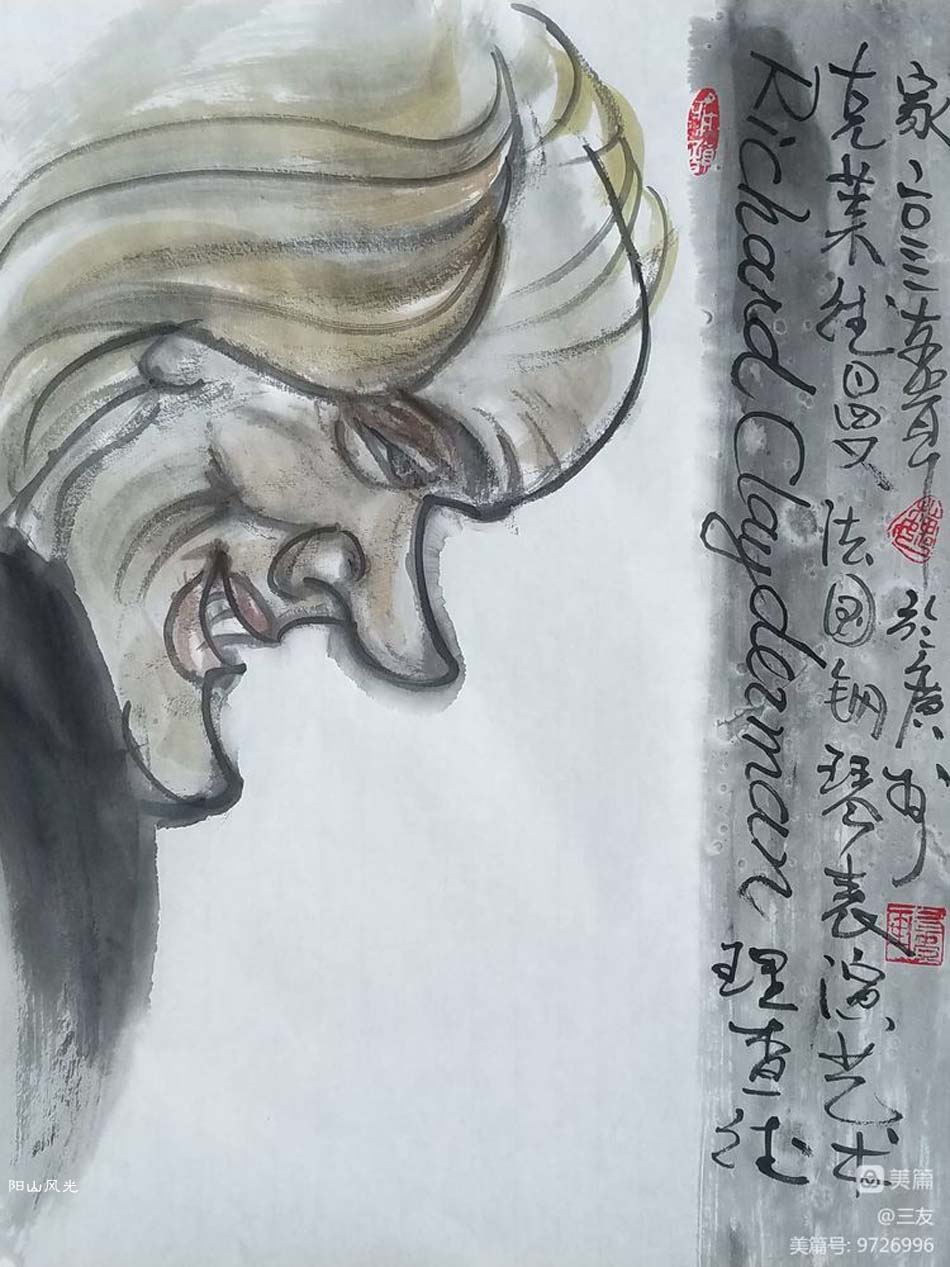 Richard Clayderman 理查德
克莱德曼 法国钢琴表演艺术
家 二〇二三年 於廣州
阳山风光
美篇
@三友
美篇号: 9726996